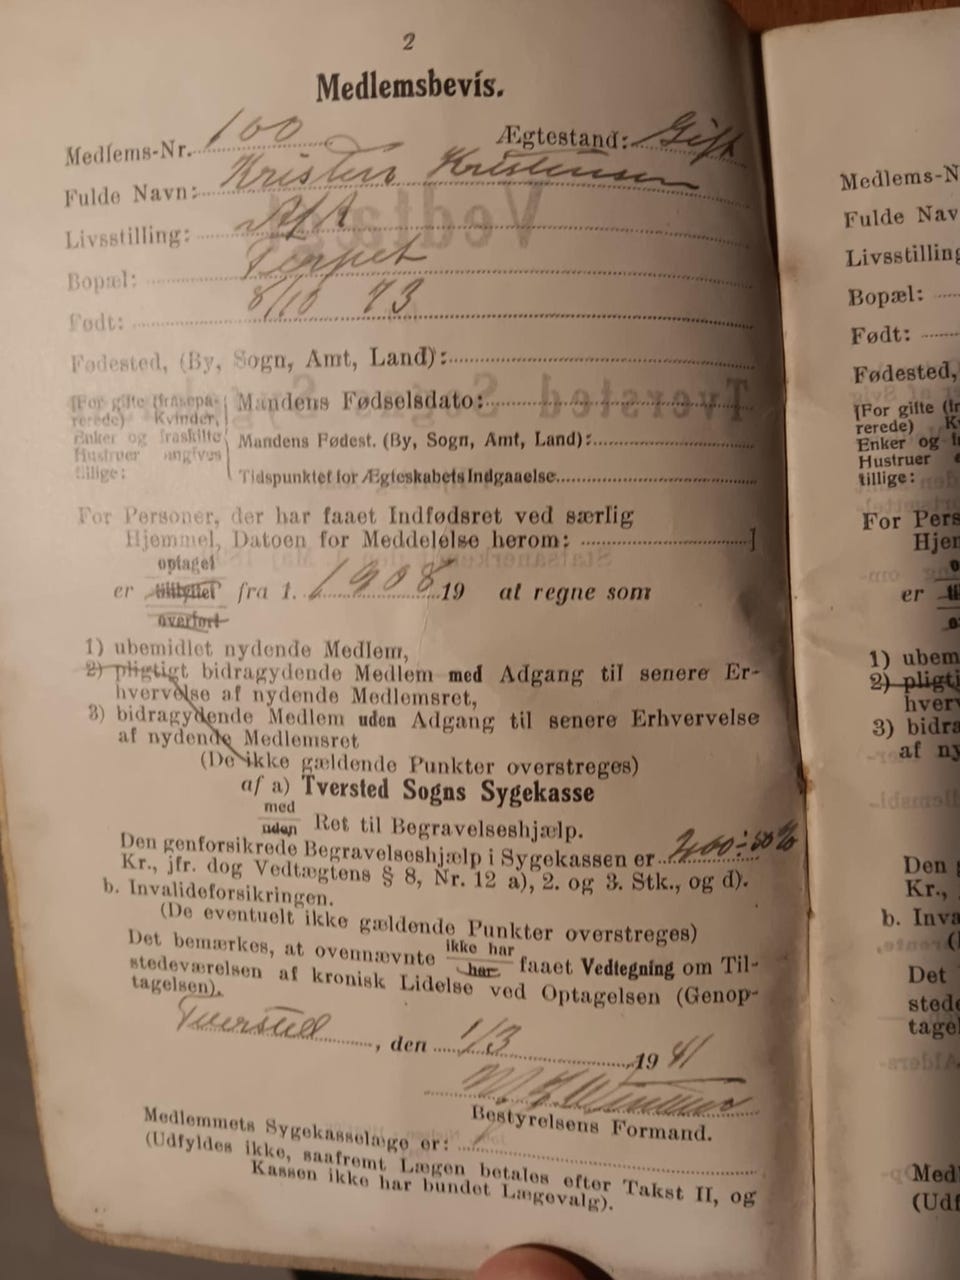 2
Medlemsbevis.
Medlems-Nr. 100 Ægtestand: Gift
Fulde Navn: Kristen Kristensen
Livsstilling: Aft
Bopæl: Terpet
Født: 8/10 73
Fødested, (By, Sogn, Amt, Land):
(For gifte (frasepa- Mandens Fødselsdato:
rerede) Kvinder,
Enker og fraskilte Mandens Fødest. (By, Sogn, Amt, Land):
Hustruer angives
tillige: Tidspunktet for Ægteskabets Indgaaelse
For Personer, der har faaet Indfødsret ved særlig
Hjemmel, Datoen for Meddelelse herom:
optaget
er tilflyttet fra 1. 1908 19 at regne som
overført
1) ubemidlet nydende Medlem,
2) pligtigt bidragydende Medlem med Adgang til senere Er-
hvervelse af nydende Medlemsret,
3) bidragydende Medlem uden Adgang til senere Erhvervelse
af nydende Medlemsret
(De ikke gældende Punkter overstreges)
af a) Tversted Sogns Sygekasse
med
uden Ret til Begravelseshjælp.
Den genforsikrede Begravelseshjælp i Sygekassen er 200 ÷ 50%
Kr., jfr. dog Vedtægtens § 8, Nr. 12 a), 2. og 3. Stk., og d).
b. Invalideforsikringen.
(De eventuelt ikke gældende Punkter overstreges)
Det bemærkes, at ovennævnte ikke har
har faaet Vedtegning om Til-
stedeværelsen af kronisk Lidelse ved Optagelsen (Genop-
tagelsen).
Tversted, den 1/3 1941
Bestyrelsens Formand.
Medlemmets Sygekasselæge er:
(Udfyldes ikke, saafremt Lægen betales efter Takst II, og
Kassen ikke har bundet Lægevalg).
Medlems-N
Fulde Nav
Livsstilling
Bopæl:
Født:
Fødested,
(For gifte (fr
rerede) K
Enker og f
Hustruer
tillige:
For Pers
Hjem
er
1) ubem
2) pligti
hverv
3) bidra
af ny
Den
Kr.,
b. Inva
Det
stede
tagel
Med
(Udf